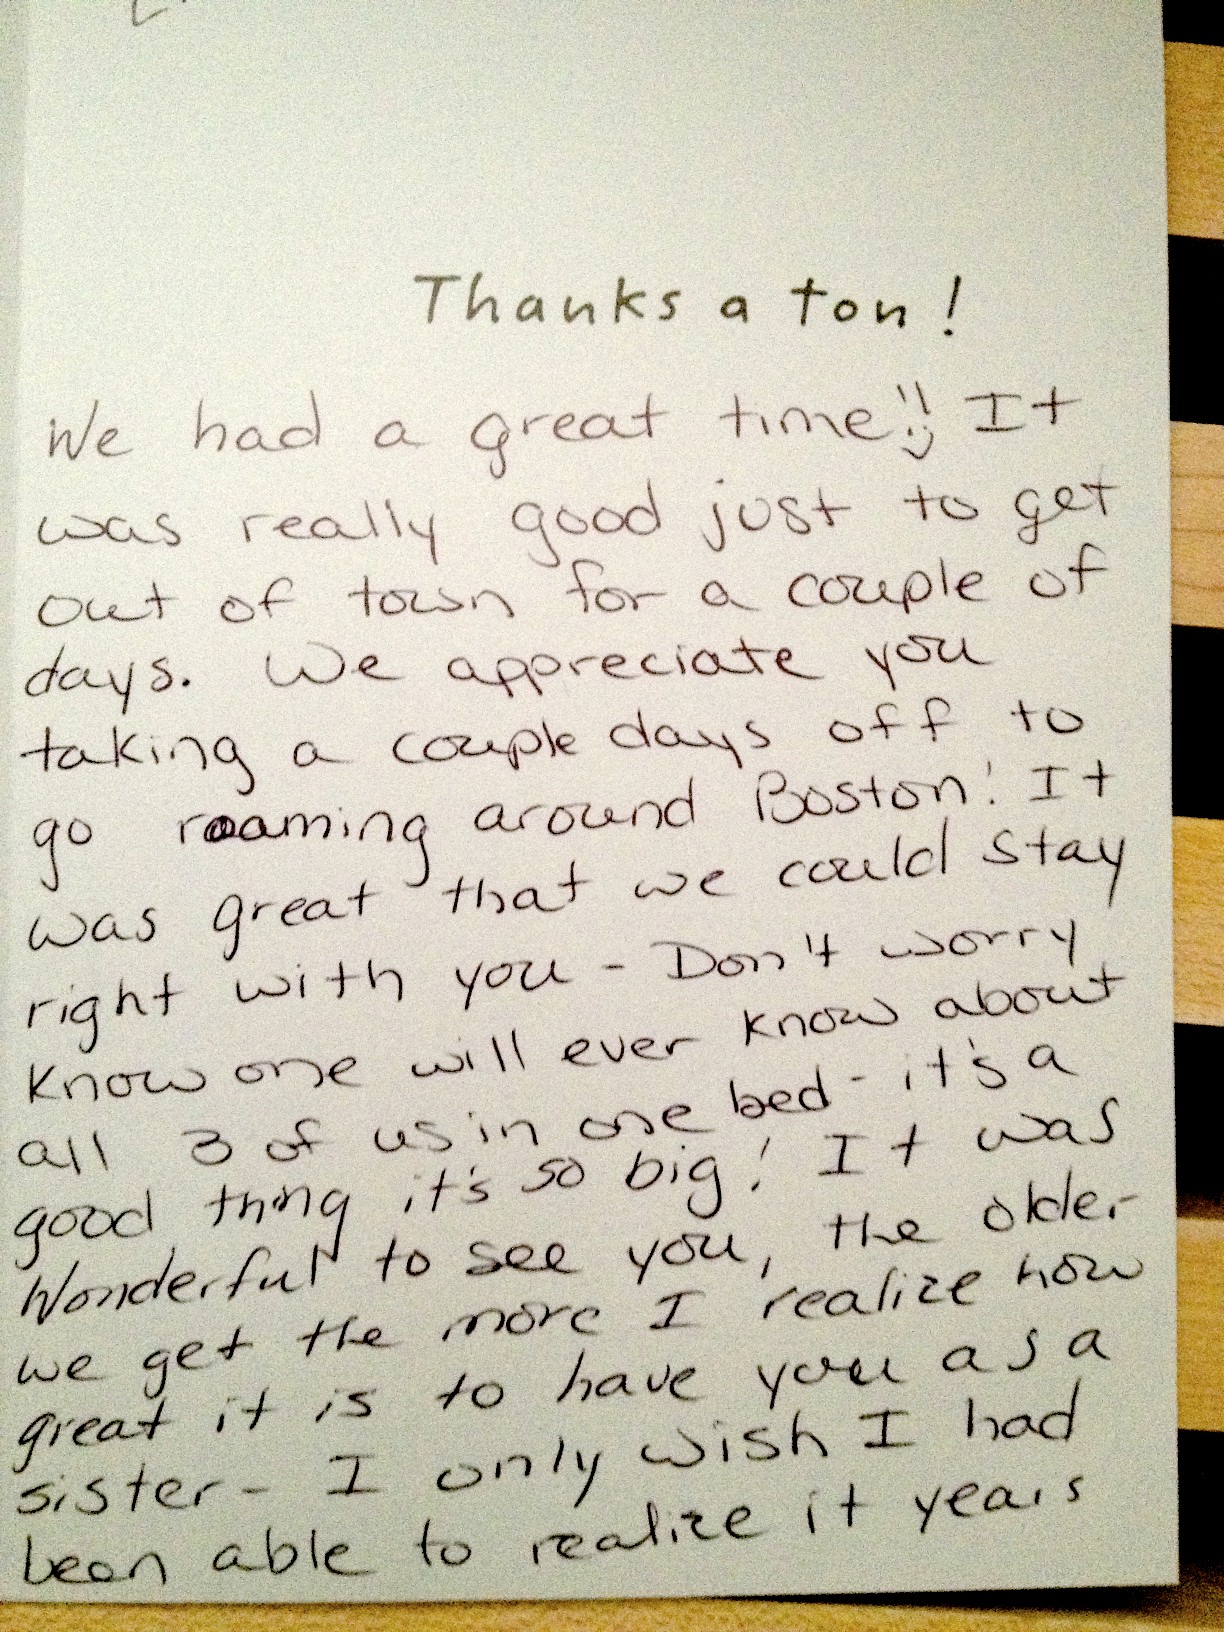 Thanks a ton!
We had a great time!! It
was really good just to get
out of town for a couple of
days. We appreciate you
taking a couple days off to
go roaming around Boston! It
was great that we could stay
right with you - Don't worry
know one will ever know about
all 3 of us in one bed - it's a
good thing it's so big! It was
Wonderful to see you, the older
we get the more I realize how
great it is to have you as a
sister - I only wish I had
been able to realize it years